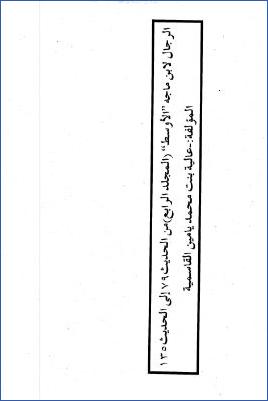 الرجال لابن ماجه "الأوسط" (المجلد الرابع) من الحديث ٧٩ إلى الحديث ١٣٥
المؤلفة:-عالية بنت محمد يامين القاسمية